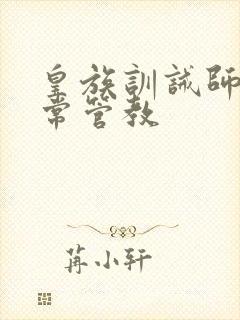 皇族訓誡師
常管教
苒小轩